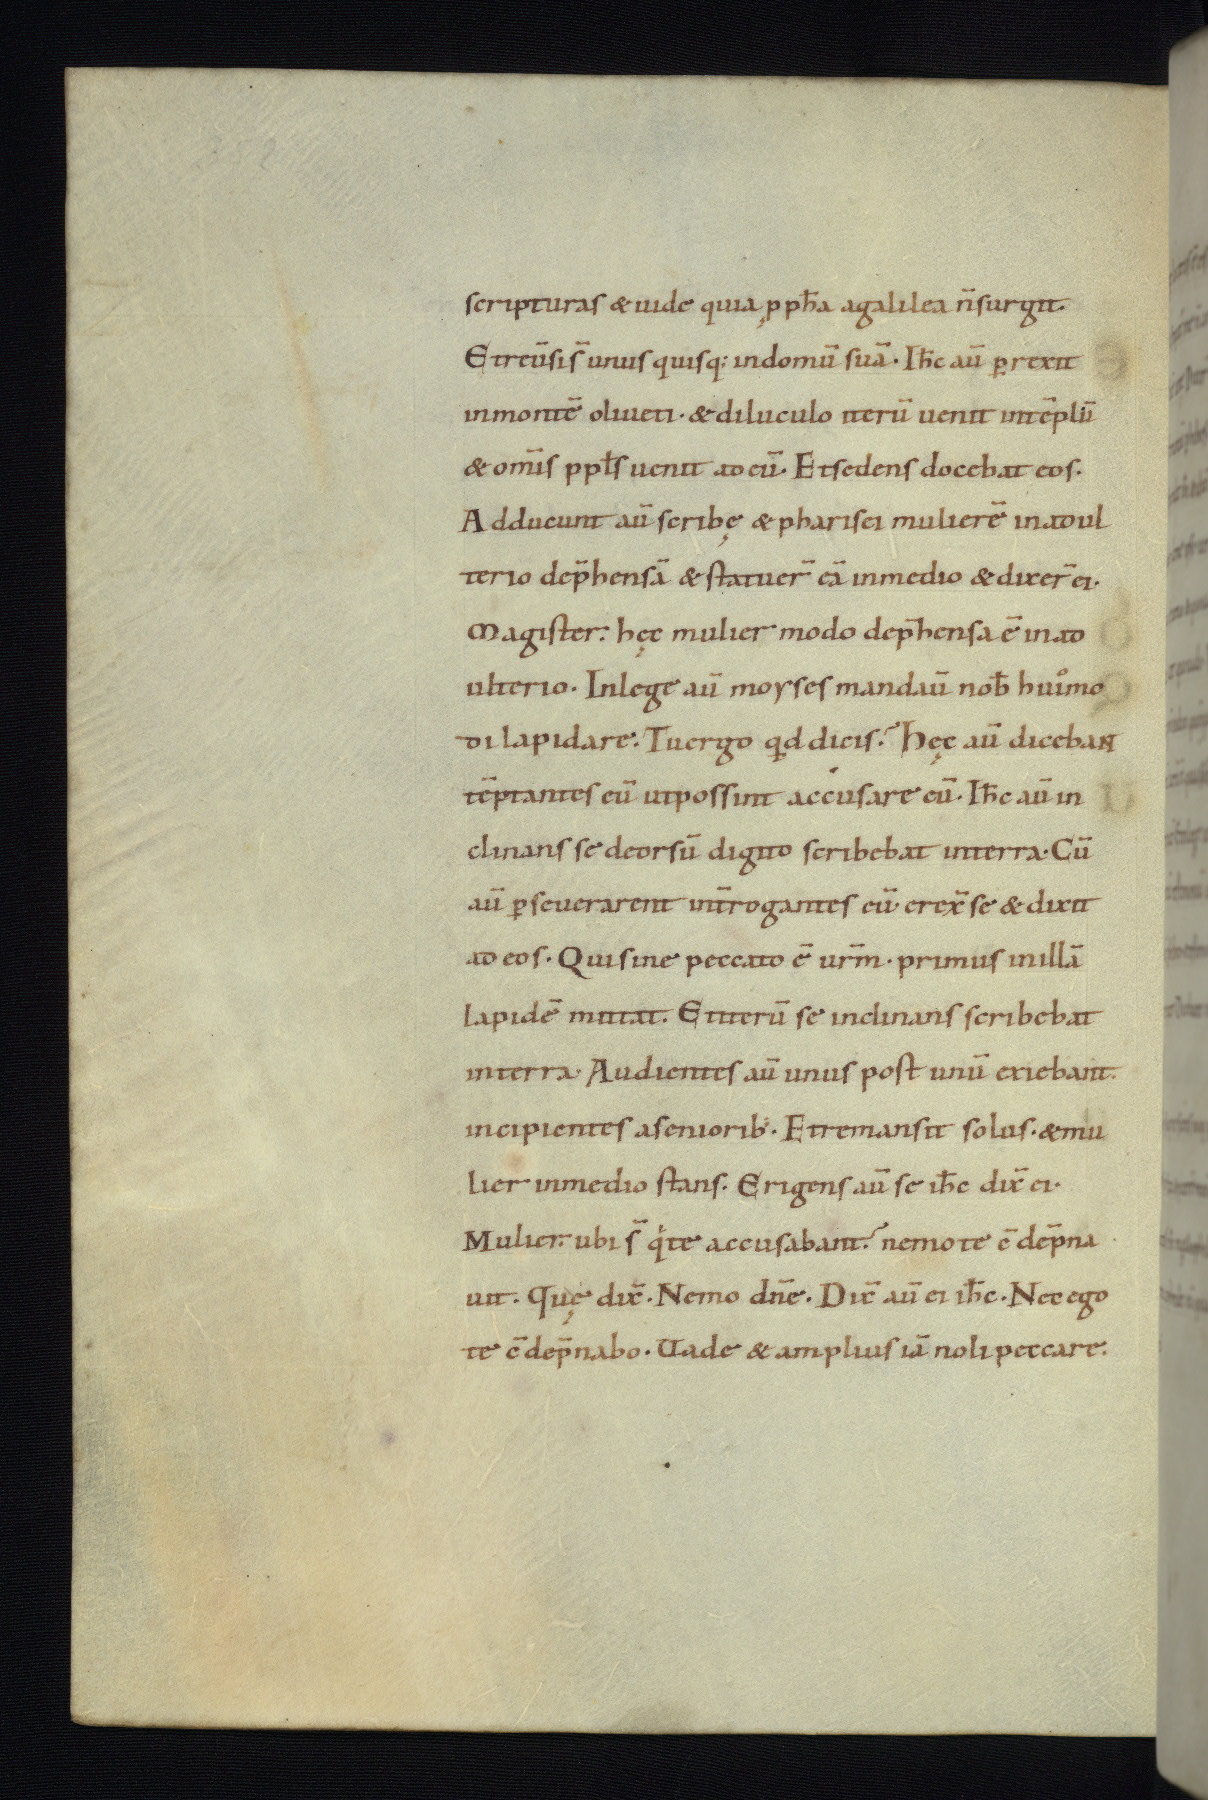 scripturas & uide quia ꝓph̄a agalilea n̄surgit.
Etreūsis̄ unus quisq; indomū suā. Ih̄c aū ꝑrexit
inmontē oliueti. & diluculo iterū uenit intēplū
& om̄is ppl̄s uenit ad eū. Etsedens docebat eos.
Adducunt aū scribę & pharisei mulierē inadul
terio dep̄hensā & statuer̄ eā inmedio & dixer̄ ei.
Magister. hęc mulier modo dep̄hensa ē inad
ulterio. Inlege aū moyses mandaū nob̄ huiͦmo
di lapidare. Tuergo qͥd dicis? Hęc aū diceban
tēptantes eū utpossint accusare eū. Ih̄c aū in
clinans se deorsū digito scribebat interra. Cū
aū ꝑseuerarent int̄rogantes eū erex̄ se & dixit
ad eos. Quisine peccato ē ur̄m. primus inillā
lapidē mittat. Etiterū se inclinans scribebat
interra. Audientes aū unus post unū exiebant.
incipientes aseniorib;. Etremansit solus. & mu
lier inmedio stans. Erigens aū se ih̄c dix̄ ei.
Mulier. ubi s̄ qͥte accusabant? nemo te c̄dēpna
uit. Quę dix̄. Nemo dn̄e. Dix̄ aū ei ih̄c. Nec ego
te c̄dēpnabo. Uade & amplius iā noli peccare.